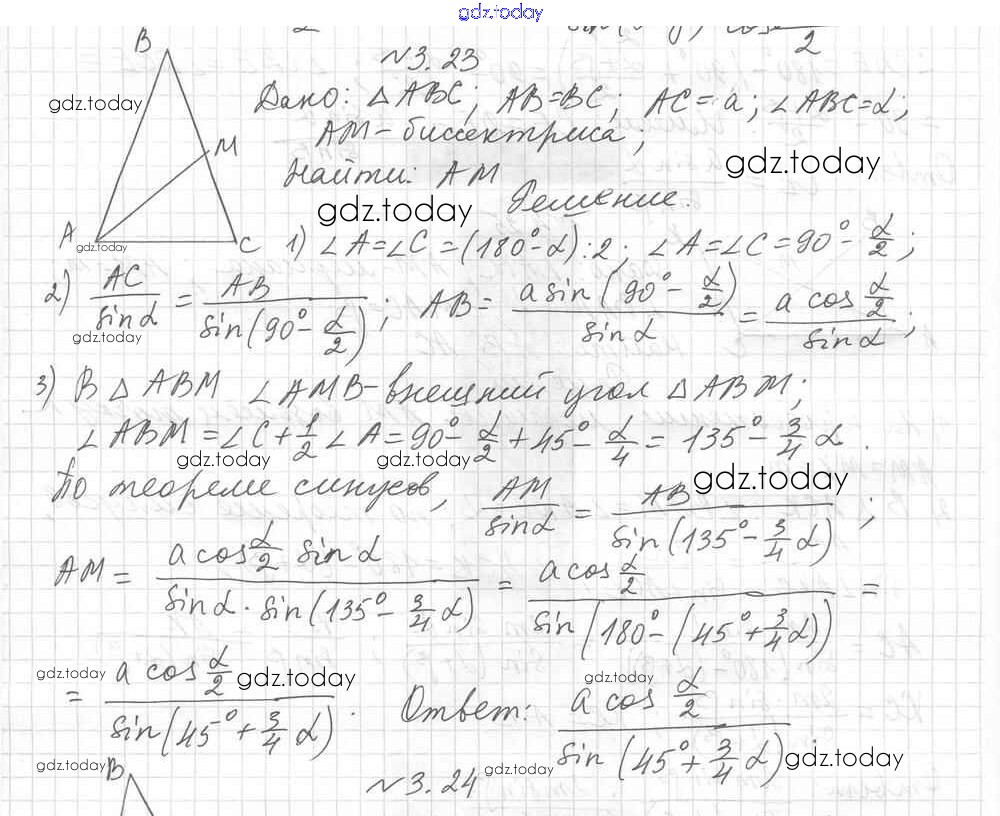 gdz.today
№3.23
B
gdz.today
Дано: △ABC; AB=BC; AC=a; ∠ABC=α;
AM-биссектриса;
M
gdz.today
Найти: AM
gdz.today
Решение.
A
C
gdz.today
1) ∠A=∠C=(180°-α):2; ∠A=∠C=90°-α/2;
2) AC/sinα = AB/sin(90°-α/2); AB= a sin(90°-α/2)/sinα = a cos α/2 / sinα;
gdz.today
3) В △ABM ∠AMB-внешний угол △ABM;
∠ABM=∠C+1/2∠A=90°-α/2+45°-α/4=135°-3/4α.
gdz.today gdz.today
По теореме синусов, AM/sinα = AB/sin(135°-3/4α);
gdz.today
AM = a cos α/2 sinα / sinα·sin(135°-3/4α) = a cos α/2 / sin(180°-(45°+3/4α)) =
gdz.today gdz.today gdz.today
= a cos α/2 / sin(45°+3/4α). Ответ: a cos α/2 / sin(45°+3/4α).
gdz.today gdz.today gdz.today
B
№3.24